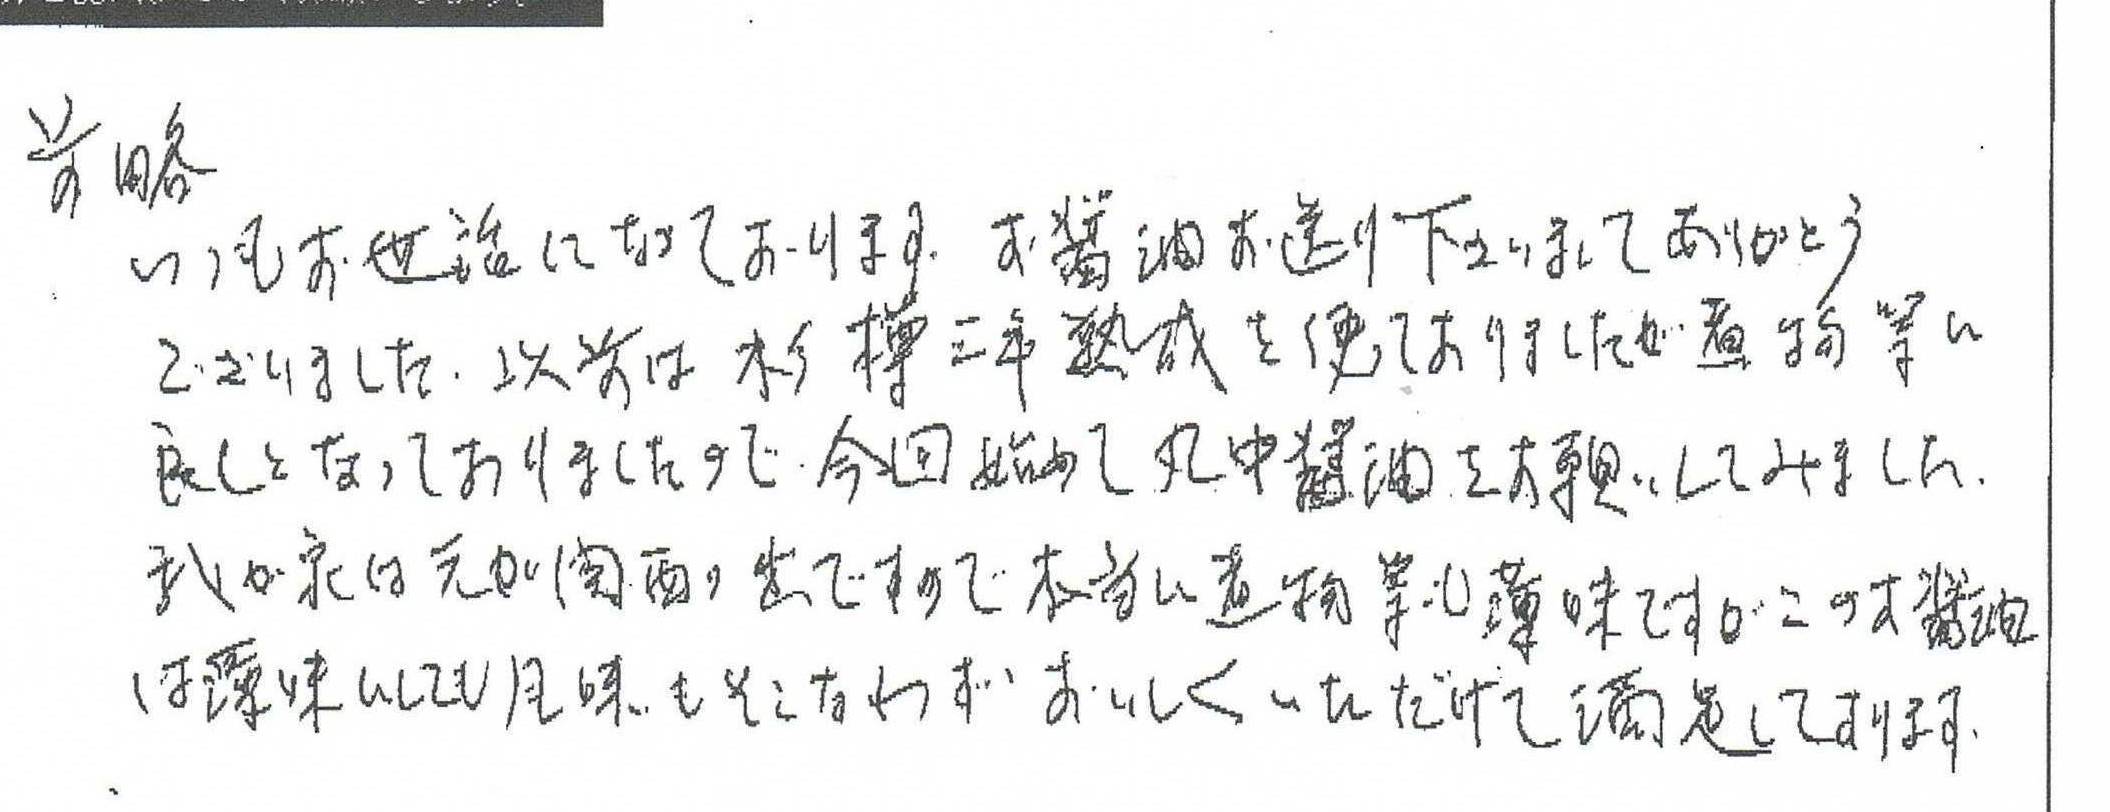 前略
いつもお世話になっております。お醤油お送り下さいましてありがとう
ございました。以前は杉樽三年熟成を使っておりましたが煮物等に
良しとなっておりましたので今回始めて丸中醤油をお願いしてみました。
我が家は元が関西の出ですので本当に煮物等も薄味ですがこのお醤油
は薄味にしても風味もそこなわずおいしくいただけて満足しております。